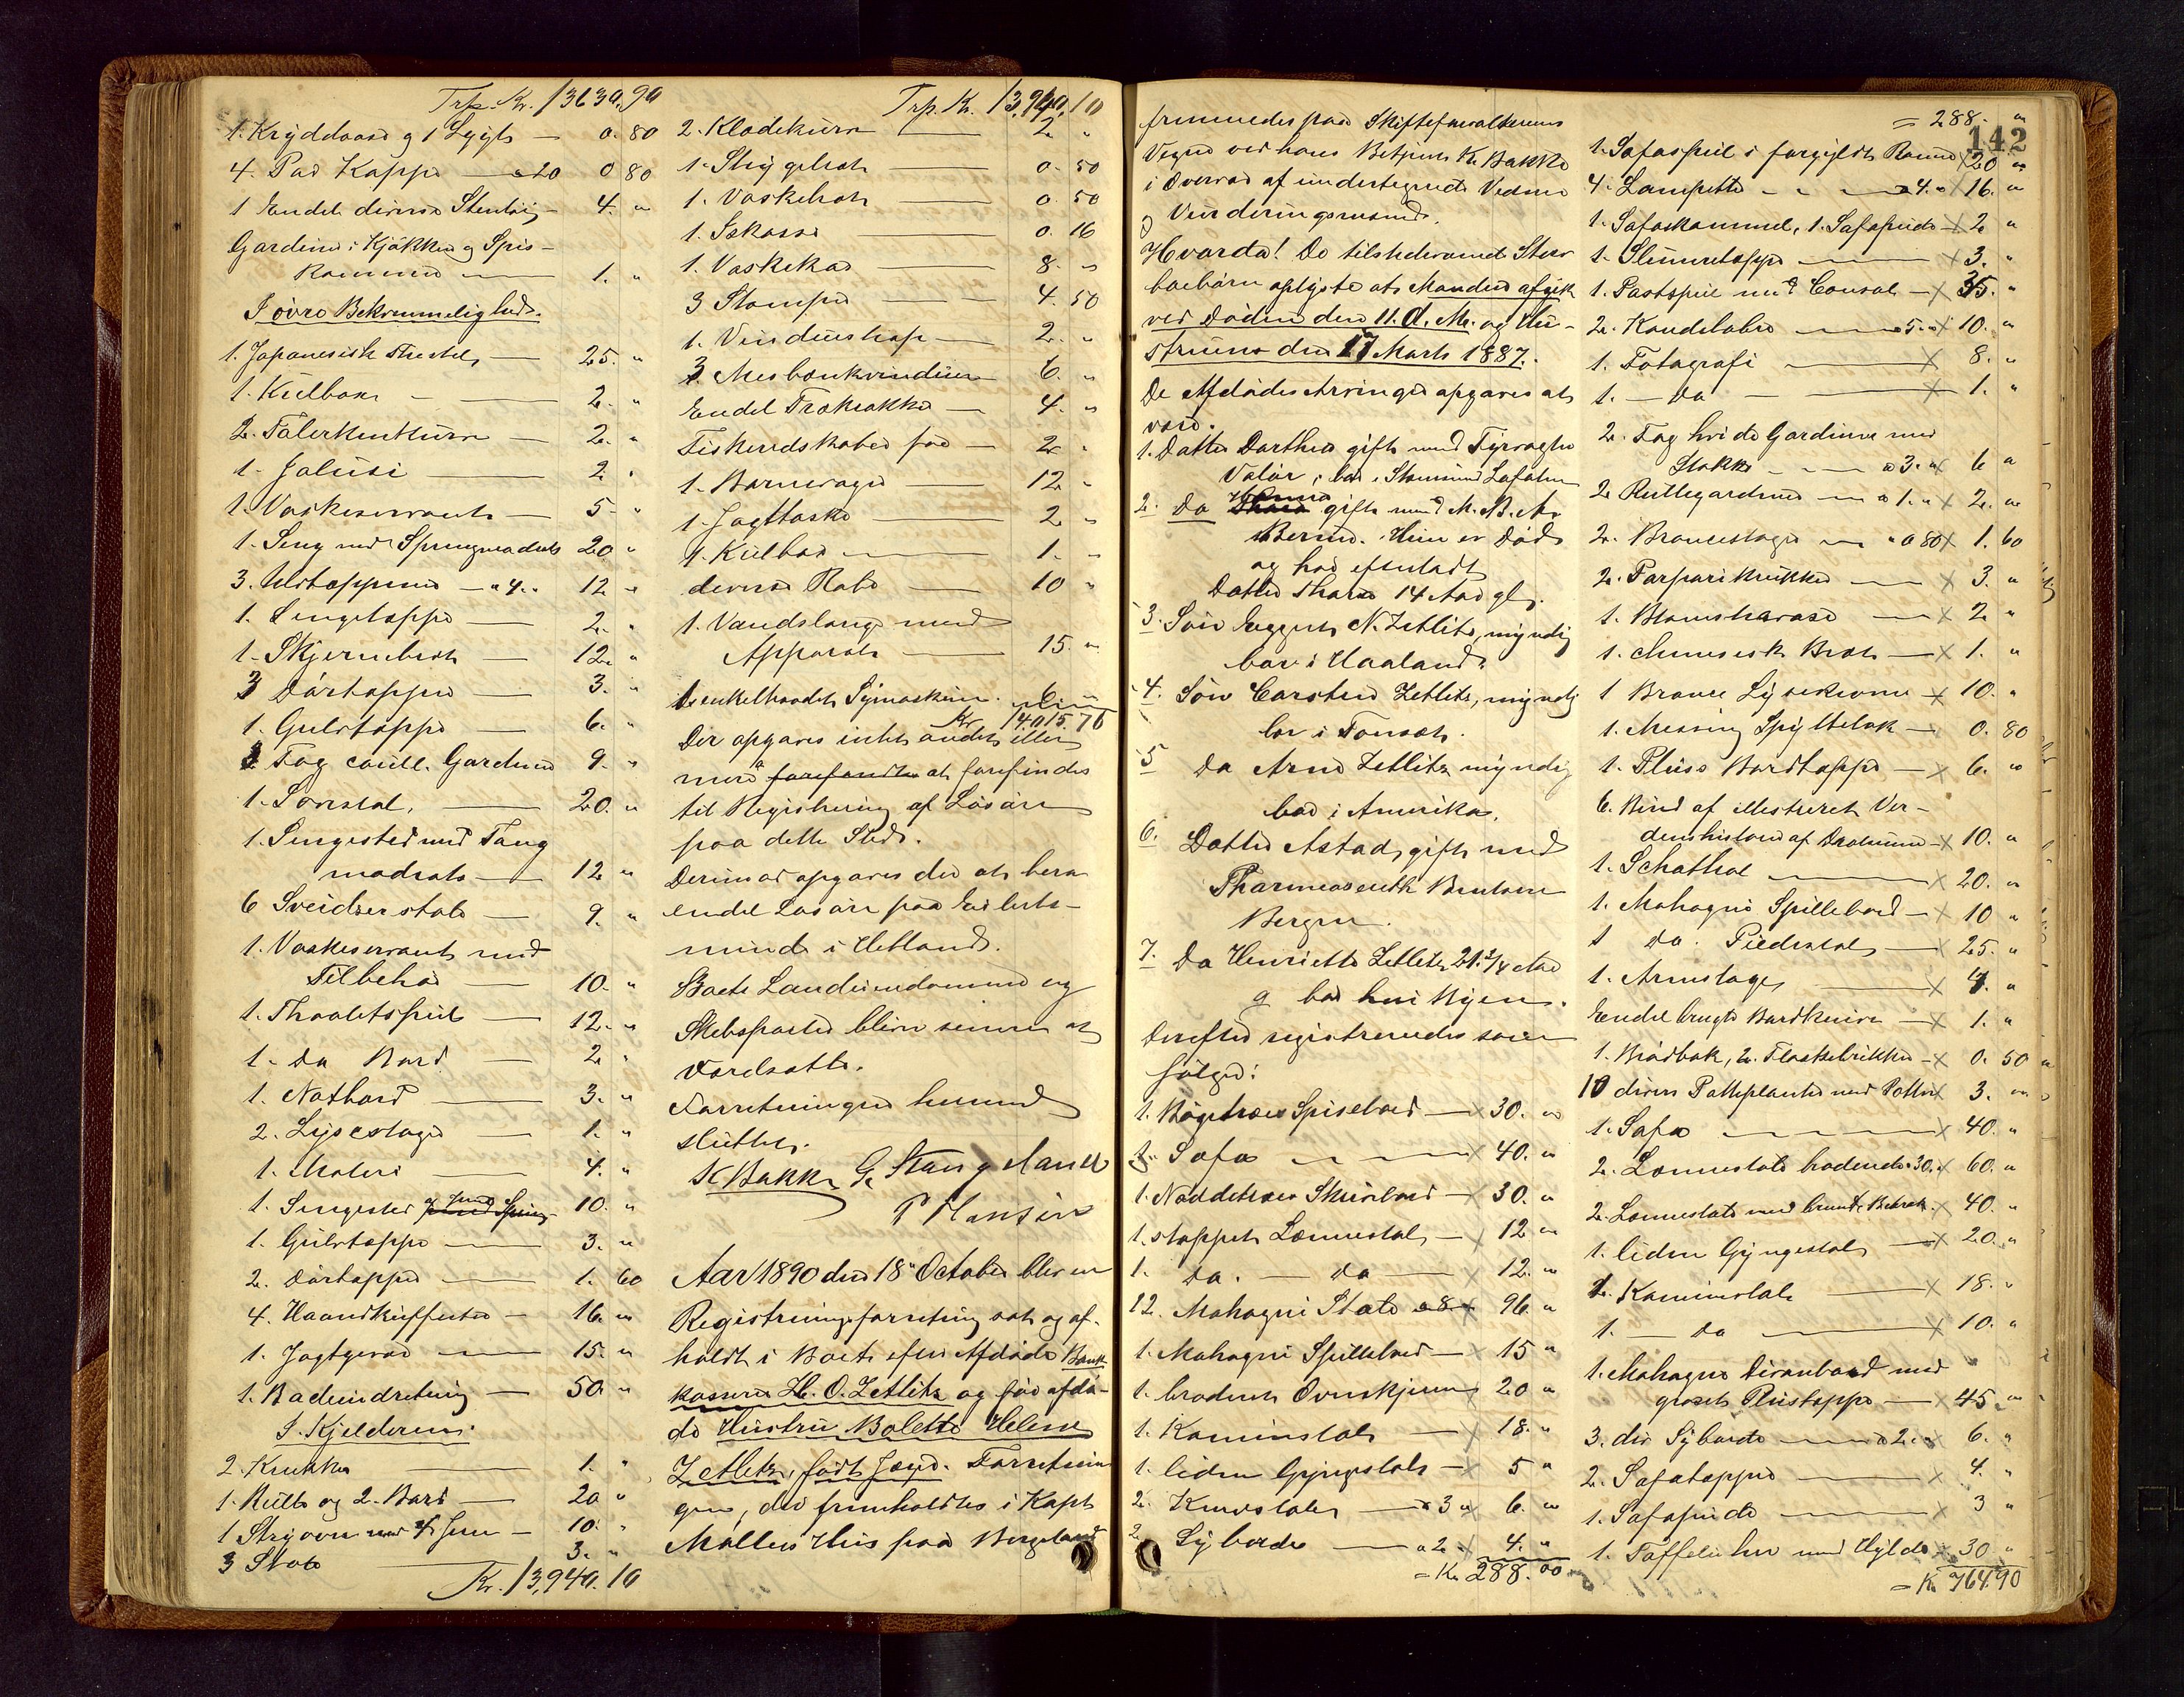 Trp. Kr. 13630,90
1. Kryddvase og 1 Lygt — 0. 80
4. Par Kopper — a 20 0 80
1 Endel diverse Stentøi — 4. "
Gardiner i Kjøkken og Spis-
kammer — 1. "
I øvre Bekvemmelighed.
1. Japanesisk Theestel — 25. "
1. Kulboxe — 2. "
2. Talerkenkurve — 2. "
1. Jalusi — 2. "
1. Vaskeservante — 5. "
1. Seng med Springmadrats 20 "
3. Uldtepper — a 4. " 12 "
1. Sengeteppe — 2. "
1. Skjermbret — 12. "
3 Dørtepper — 3. "
1. Gulvteppe — 6. "
3 Fag coul. Gardiner 9. "
1. Lænestol, — 20. "
1. Sengested med Tang
madrats — 12 "
6 Sveidserstole — 9. "
1. Vaskeservante med
Tilbehør — 10. "
1. Thoaletspeil — 12. "
1. Do Bord — 2. "
1. Natbord — 3. "
2. Lysestager — 1. "
1. Maleri — 4. "
1. Sengested 10. "
1. Gulvteppe — 3. "
2. Dørtepper — 1. 60
4. Haandkufferter — 16. "
1. Jagtgevær — 15. "
1. Badeindretning — 50. "
I Kjelderen.
2. Krukker — 1. "
1. Rulle og 2. Bord — 20 "
1 Strygovn med 4 Jern — 10. "
3 Stole 3. "
Kr. 13,940. 10
Trp. Kr. 13,940,10
2. Klædekurve — 2. "
1. Strygebret — 0. 50
1. Vaskebret — 0. 50
1. Kasse — 0. 16
1. Vaskekar — 8. "
3 Stamper — 4. 50
1. Vinduskap — 2. "
3. Mesbænkvinduer 6. "
Endel Trækasser — 4. "
Fiskeredskaber for — 2. "
1. Barnevogn — 12. "
1. Jagttaske — 2 "
1. Kulbox — 1. "
diverse Rabe — 10 "
1. Vandslange med
Apparat — 15. "
1. enkelhaandet Symaskine. 6. "
Kr. 14015. 76
Der opgaves intet andet eller
mere at forefindes
til Registrering af Løsøre
paa dette Sted.
Derimod opgaves der at bero
endel Løsøre paa Eilerts-
minde i Hetland.
Boets Landeiendomme og
Skibsparter bliver senere at
værdsætte.
Forretningen hermed
sluttet.
K Bakke G. Stangeland
P Hansen
Aar 1890 den 18" October blev en
Registreringsforretning sat og af-
holdt i Boet efter Afdøde Bank
kasserer H. O. Zetlitz og før afdø-
de Hustru Bolette Helene
Zetlitz, født Jæger. Forretnin
gen, der fremholdtes i Kapt
Møllers Hus paa Bergeland
fremmedes paa Skifteforvalterens
Vegne ved hans Betjent K. Bakke
i Overvær af undertegnede Vidner
og Vurderingsmænd.
Hvorda! De tilstedeværende Sterv
boebørn oplyste at Manden afgik
ved Døden den 11. d. M. og Hu-
struen den 17 Marts 1887.
De Afdødes Arvinger opgaves at
være.
1. Datter Dorthea gift med Fyrvogter
Valør, bor i Stamsund Lofoten
2. Do Hanna gift med M. B. A.
Bernd. Hun er Død
og har efterladt
Datter Thora 14 Aar gl.
3. Søn Eggert N. Zetlitz, myndig
bor i Haaland.
4. Søn Carsten Zetlitz, myndig
bor i Tonsæt.
5 Do Arne Zetlitz myndig
bor i Amerika.
6. Datter Astad, gift med
Pharmaseutk Berntsen
Bergen.
7. Do Henriette Zetlitz, 21 3/4 Aar
g bor her i Byen.
Derefter registreredes som
følger:
1. Bøgetræes Spisebord — x 30. "
1. Sofa — x 40. "
1. Nøddetræes Skrivbord — x 30. "
1. stoppet Lænestol, — x 12 "
1. do. — do — x 12. "
12. Mahogni Stole a 8. x 96. "
1. Mahogni Spillebord — x 15 "
1. broderet Ovnskjerm 20 "
1. Kaminstol — x 18. "
1. liden Gyngestol — x 5 "
2. Kurvstoler — a 3 x 6. "
2. Syborde — a 2 x 4. "
= Kr 288. 00
= 288. "
142
1. Sofaspeil i forgyldt Ramme x 20 "
4. Lampetter — a 4. " x 16. "
1. Sofaskammel, 1. Sofapude x 2 "
1. Slumreteppe — x 3. "
1. Pastspeil med Consol — x 35. "
2. Kandelabre — a 5. x 10. "
1. Fotografi — x 8. "
1. — Do — x 1. "
2. Fag hvide Gardiner med
Stokke — a 3. x 6 "
2 Rullegardiner — a 1. " x 2. "
2. Broncestager — a 0 80 x 1. 60
2. Parparikrukker — x 3. "
1. Blomstervase — x 2 "
1. chinesisk Bræt — x 1. "
1 Bronce Lysekrone x 10. "
1. Messing Spyttebak — 0. 80
1. Pluss Bordteppe — x 6. "
6. Bind af illustreret Ver-
denshistorie af Drolsum x 10. "
1. Schathol — x 20. "
1. Mahogni Spillebord — x 10 "
1 Do. Piedestal — x 25. "
1. Armstage, — x 4. "
Endel brugte Bordknive — x 1. "
1. Brødbak, 2. Flaskebrikker x 0. 50
10 divers Potteplanter med Potter x 3. "
1. Sofa — x 40. "
2. Lænestole broderede a 30. x 60. "
2. Lænestole med brunt Betræk. x 40. "
1. liden Gyngestol, — x 20. "
1. Kaminstol — x 18. "
1. — do — x 10. "
1. Mahogni Divanbord med
grønt Plusteppe — x 45. "
3. div Syborde — a 2. x 6. "
2. Sofatepper — x 4. "
1. Sofapude — x 3 "
1. Taffeluhr med Hylde x 30 "
= Kr 764. 90